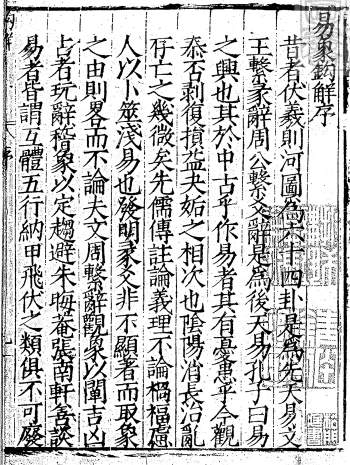 易象鈎解序
昔者伏羲則河圖為六十四卦是為先天易文
王繫彖辭周公繫爻辭是為後天易孔子曰易
之興也其於中古乎作易者其有憂患乎今觀
泰否剥復損益夬姤之相次也陰陽消長治亂
存亡之幾微矣先儒傳註論義理不論禍福慮
人以卜筮淺易也發明彖爻非不顯著而取象
之由則畧而不論夫文周繫辭觀象以闡吉凶
占者玩辭稽象以定趨避朱晦菴張南軒善談
易者皆謂互體五行納甲飛伏之類俱不可廢